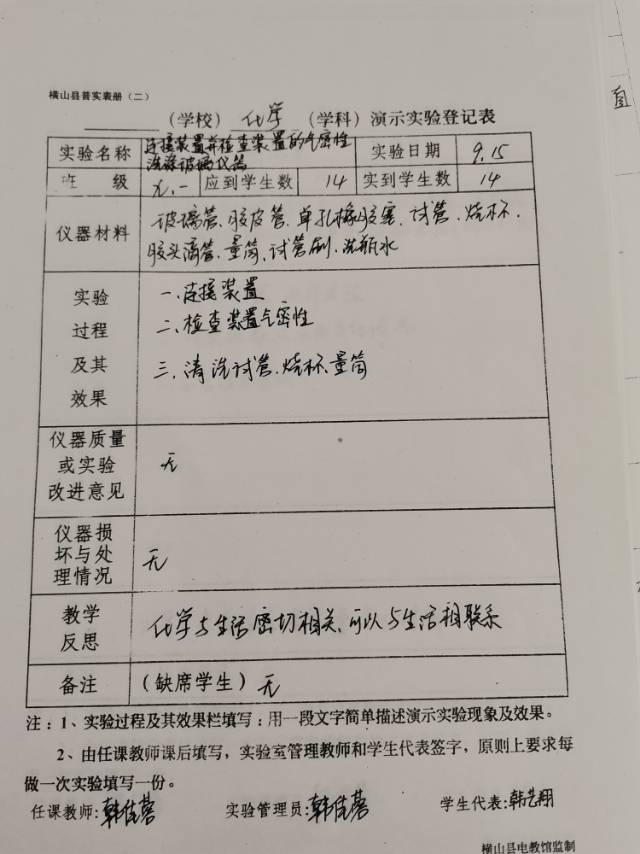 横山县普实表册（二）
（学校） 化学 （学科）演示实验登记表
实验名称 连接装置并检查装置的气密性 洗涤玻璃仪器 实验日期 9.15
班 级 九.一 应到学生数 14 实到学生数 14
仪器材料 玻璃管、胶皮管、单孔橡胶塞、试管、烧杯、
胶头滴管、量筒、试管刷、洗瓶水
实验 一、连接装置
过程 二、检查装置气密性
及其 三、清洗试管、烧杯、量筒
效果
仪器质量
或实验 无
改进意见
仪器损
坏与处 无
理情况
教学 化学与生活密切相关、可以与生活相联系
反思
备注 （缺席学生）无
注：1、实验过程及其效果栏填写：用一段文字简单描述演示实验现象及效果。
2、由任课教师课后填写，实验室管理教师和学生代表签字，原则上要求每
做一次实验填写一份。
任课教师:韩佳蓉 实验管理员:韩佳蓉 学生代表:韩艺翔
横山县电教馆监制